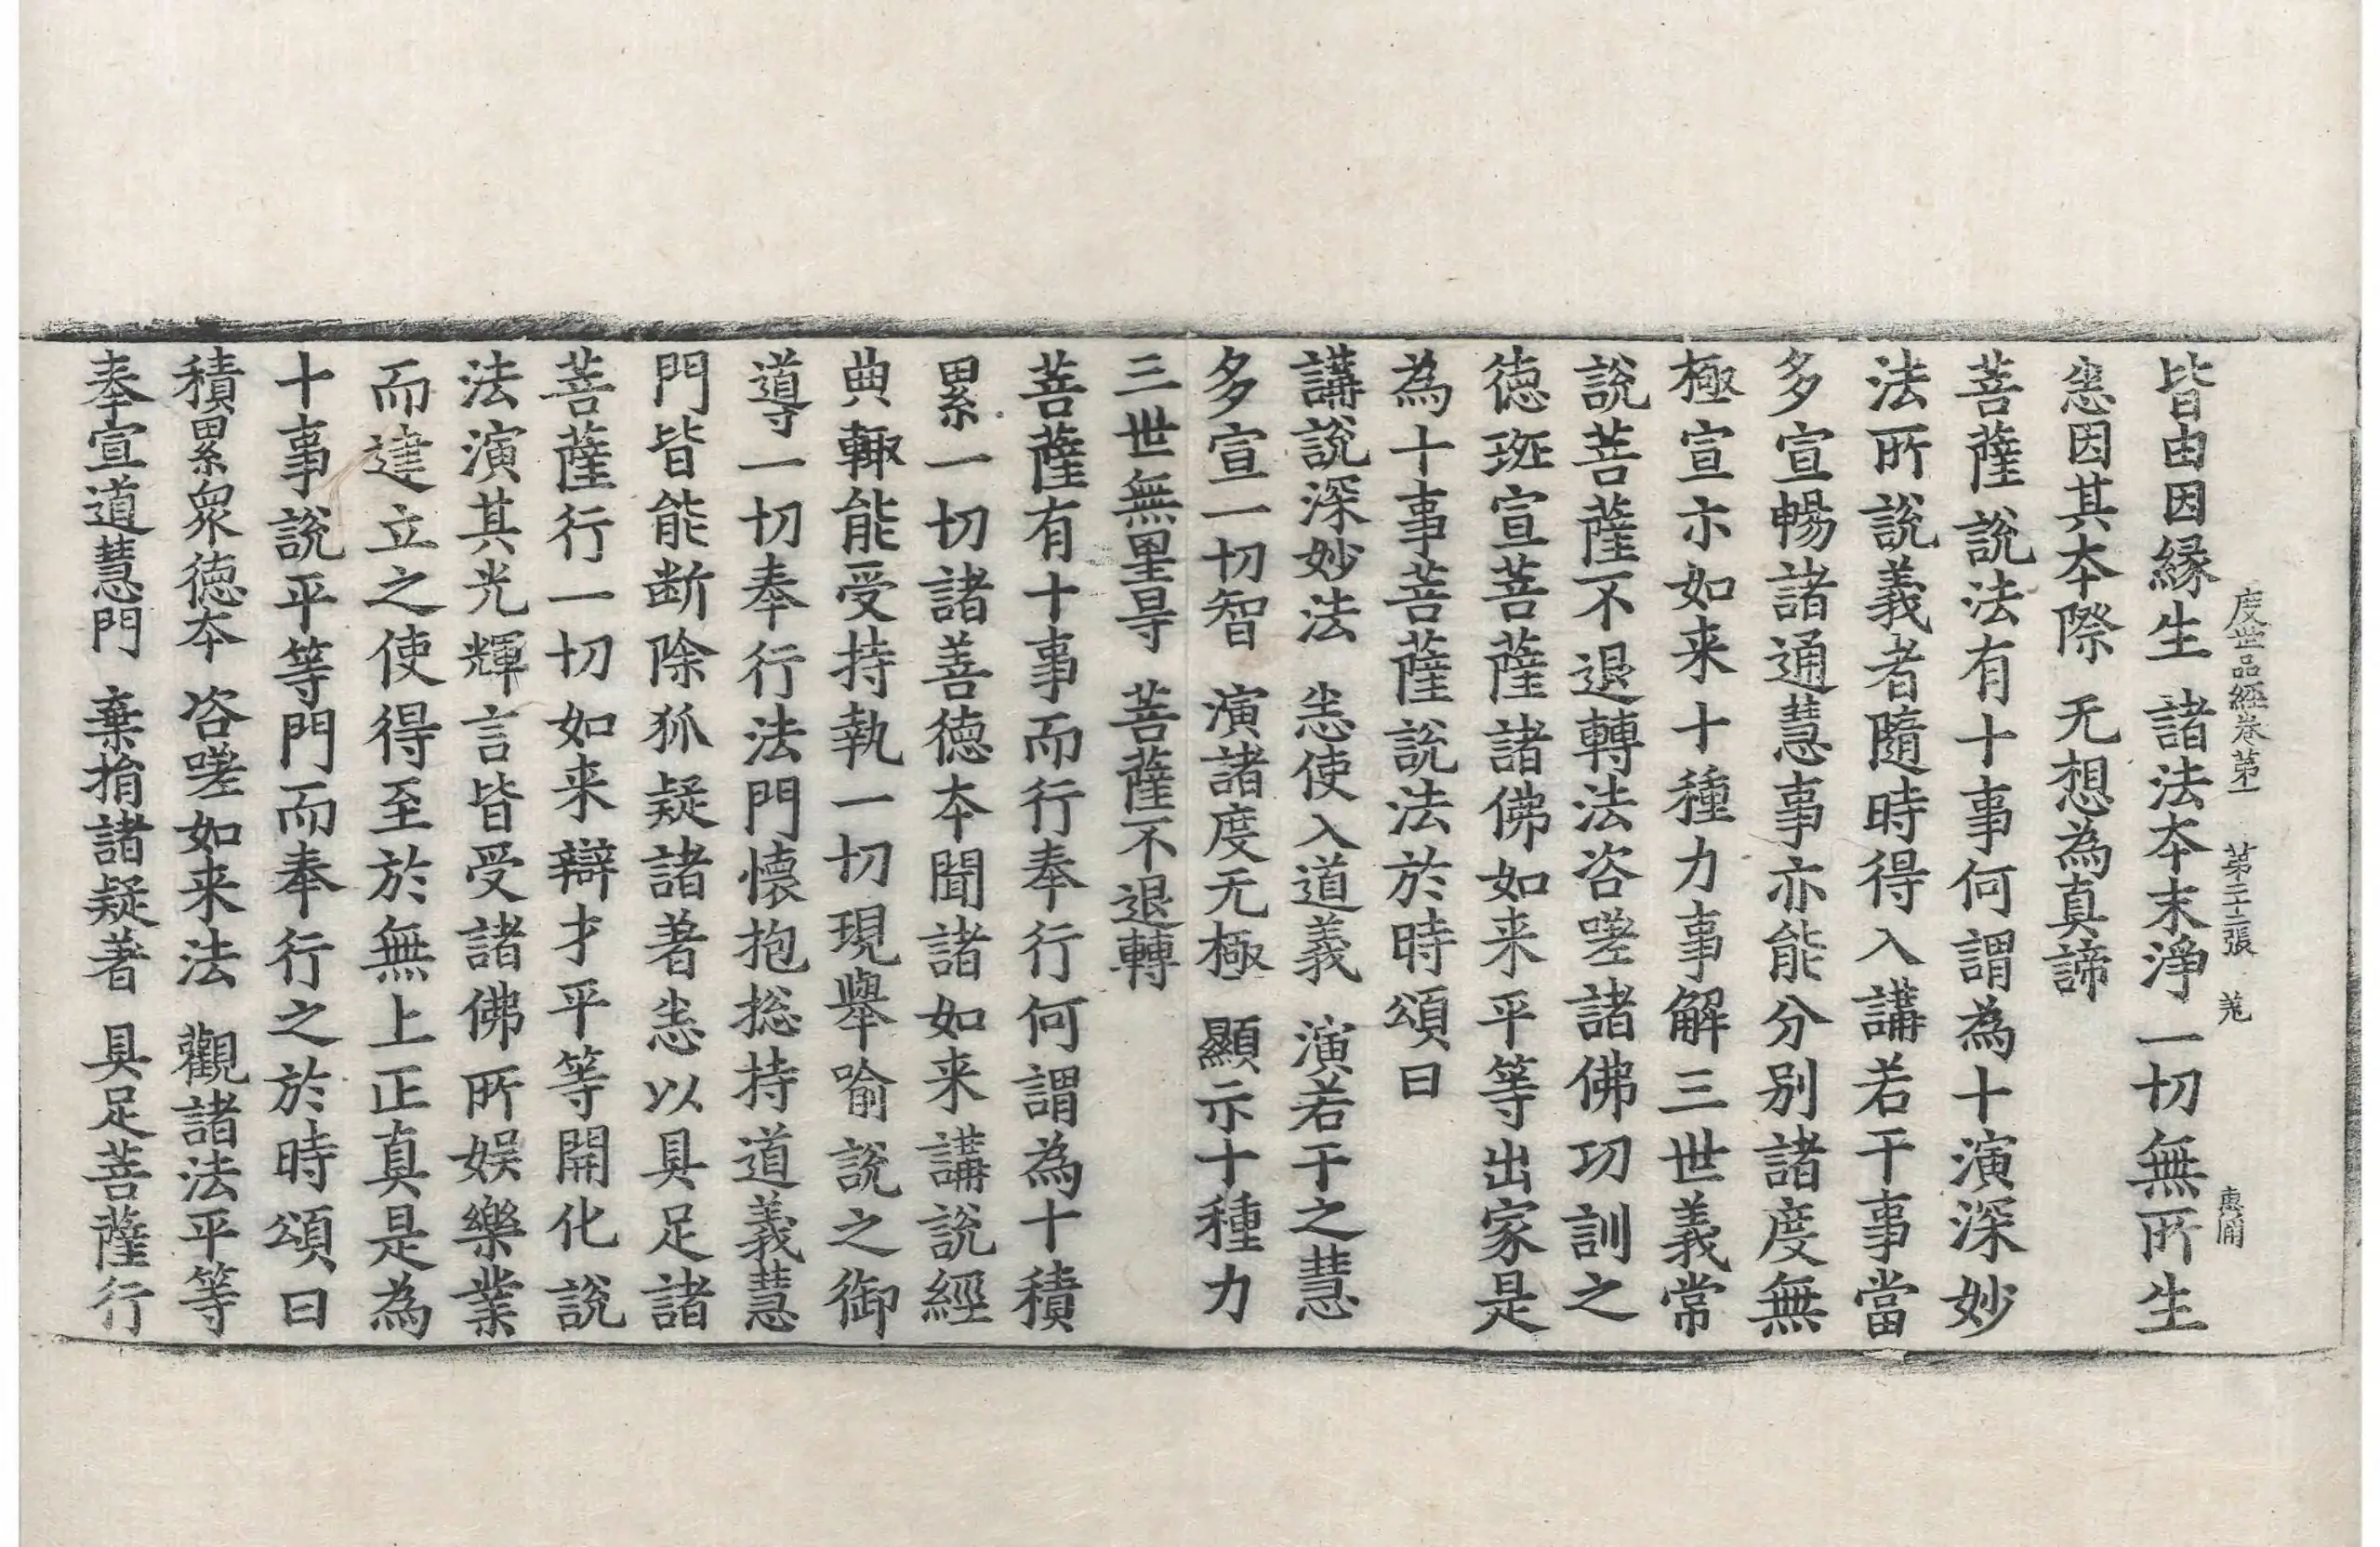 度世品經卷第一 第二十二張 羗
皆由因緣生 諸法本末淨 一切無所生
悉因其本際 无想為真諦
菩薩說法有十事何謂為十演深妙
法所說義者隨時得入講若干事當
多宣暢諸通慧事亦能分別諸度無
極宣示如来十種力事解三世義常
說菩薩不退轉法咨嗟諸佛功訓之
德班宣菩薩諸佛如来平等出家是
為十事菩薩說法於時頌曰
講說深妙法 悉使入道義 演若干之慧
多宣一切智 演諸度无極 顯示十種力
三世無罣㝵 菩薩不退轉
菩薩有十事而行奉行何謂為十積
累一切諸善德本聞諸如来講說經
典輙能受持執一切現舉喻說之御
導一切奉行法門懷抱捴持道義慧
門皆能断除狐疑諸著悉以具足諸
菩薩行一切如来辯才平等開化說
法演其光輝言皆受諸佛所娛樂業
而建立之使得至於無上正真是為
十事說平等門而奉行之於時頌曰
積累衆德本 咨嗟如来法 觀諸法平等
奉宣道慧門 棄捐諸疑著 具足菩薩行